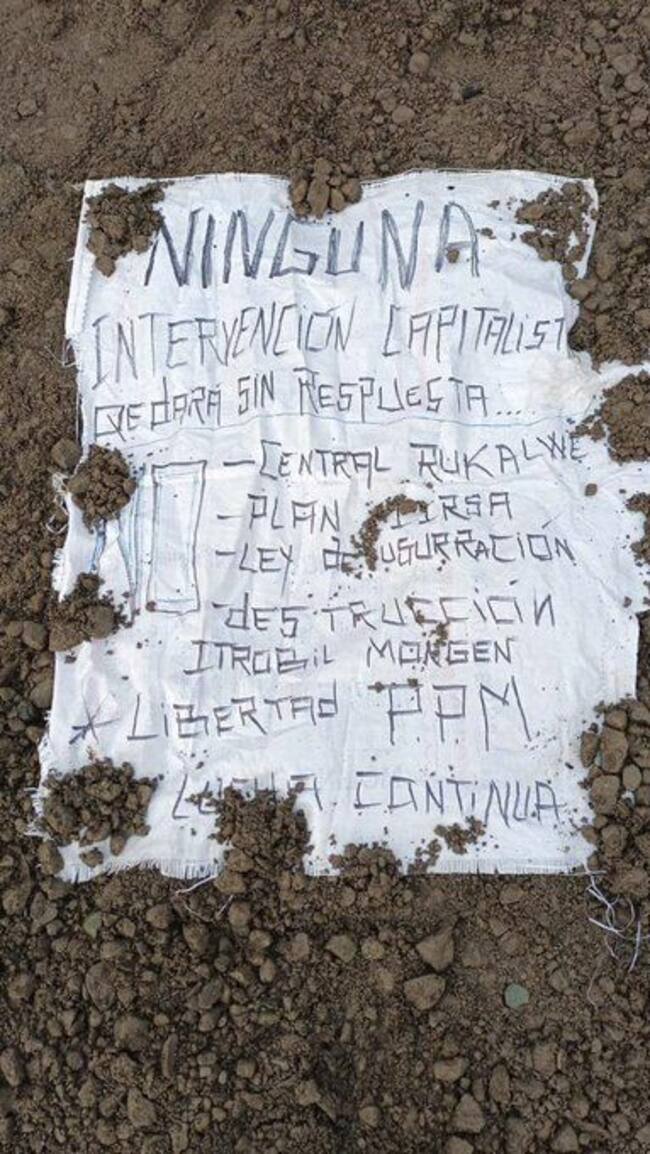 NINGUNA
INTERVENCIÓN CAPITALIST
QEDARÁ SIN RESPUESTA...
-CENTRAL RUKALWE
-PLAN IIRSA
-LEY de
-dESTRUCCION
ITROBIL MONGEN
* LIBERTAd P.P.M
LUCHA CONTINUA